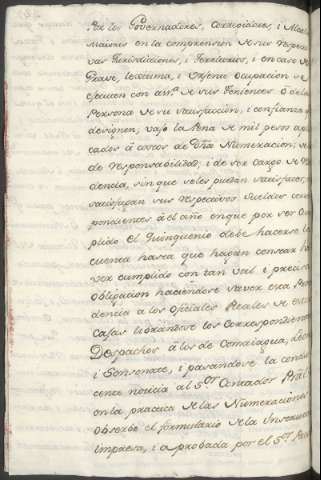 Por los Governadores, Corregidores, i Alcaldes
maiores en la comprension de sus respecti
vas Jurisdiciones, i Territorios, i en caso de
grave, lexitima, i urgente ocupacion se
efectuen con asist.ª de sus Tenientes ò de la
Persona de su satisfacion, i confianza q.
designen, vajo la Pena de mil pesos apli
cados à costas de dhã Numeracion; de
de responsabilidad; i de ser cargo de Resi
dencia, sin que se les puedan satisfacer, ni
satisfagan sus respectivos sueldos corres
pondientes à el año en que por ser cum
plido el Quinquenio debe hacerse la
cuenta hasta que hagan constar ha
ver cumplido con tan util i precisa
obligacion haciendose saver esta Provi
dencia a los oficiales Reales de estas
Cajas librandose los correspondientes
Despachos à los de Comaiagua,
i Sonsonate, i pasandose la condu
cente noticia al S.or Contador
en la practica de las Numeraciones
observe el formulario de la Instruccion
impresa, i aprobada por el S.or